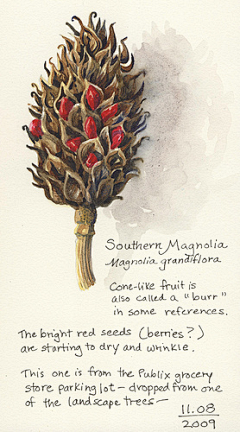 Southern Magnolia
Magnolia grandiflora
Cone-like fruit is
also called a "burr"
in some references.
The bright red seeds (berries?)
are starting to dry and wrinkle.
This one is from the Publix grocery
store parking lot – dropped from one
of the landscape trees –
11.08
2009